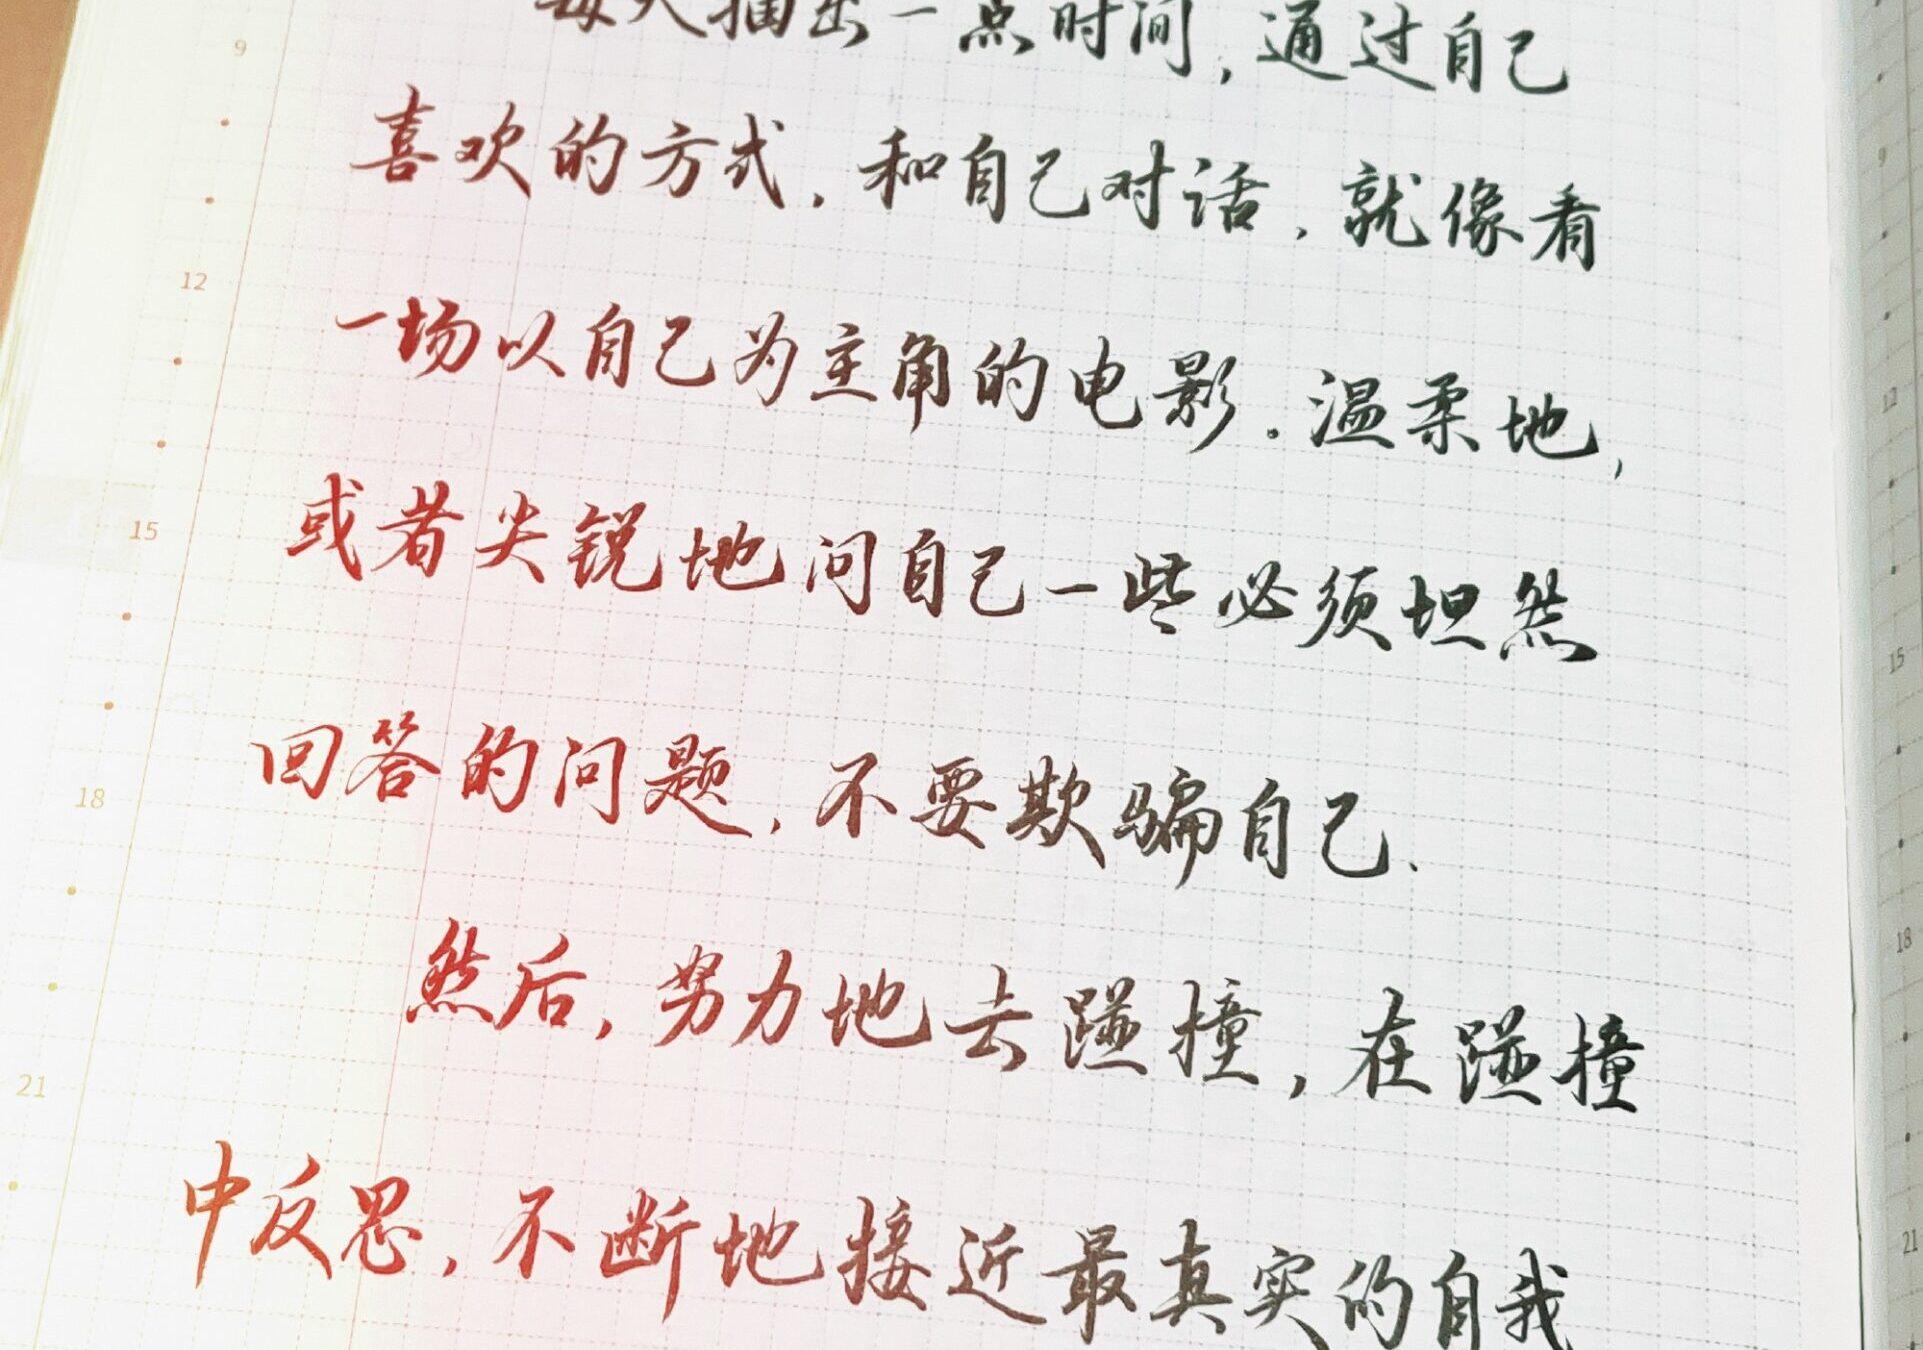 每天抽出一点时间，通过自己
喜欢的方式，和自己对话，就像看
一场以自己为主角的电影。温柔地，
或者尖锐地问自己一些必须坦然
回答的问题，不要欺骗自己。
然后，努力地去碰撞，在碰撞
中反思，不断地接近最真实的自我
9
12
15
18
21
9
12
15
18
21